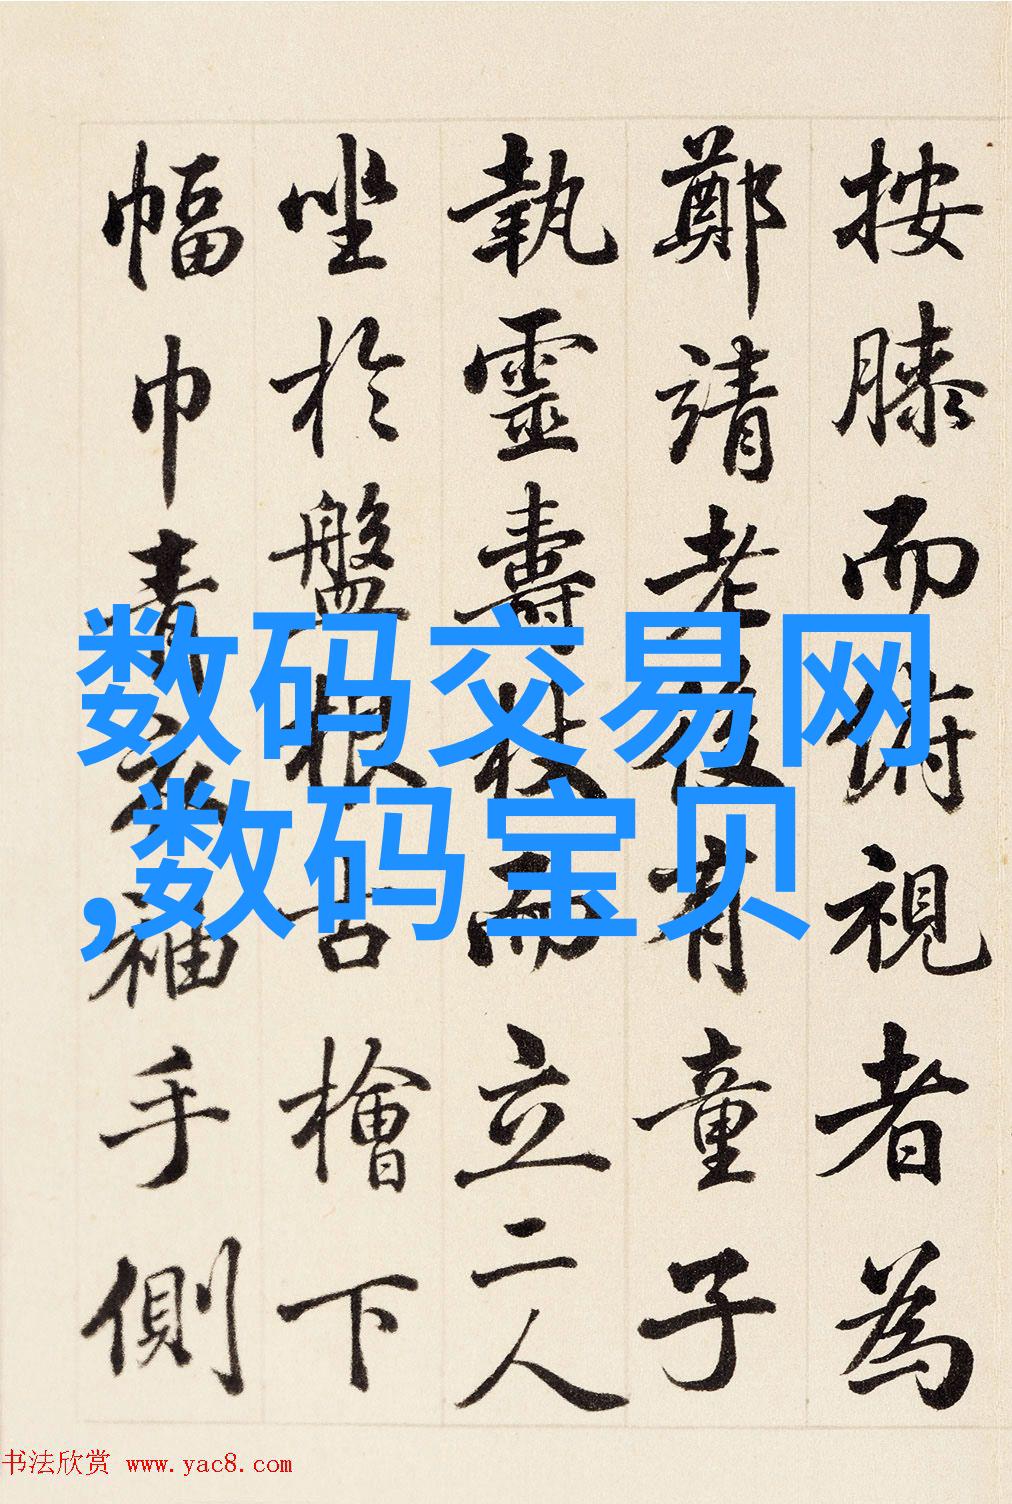 按膝而俯視者為
鄭靖老後有童子
執靈壽杖而立二人
坐於盤根古檜下
幅巾青衣袖手側
数码交易网
,数码宝贝
书法欣赏 www.yac8.com